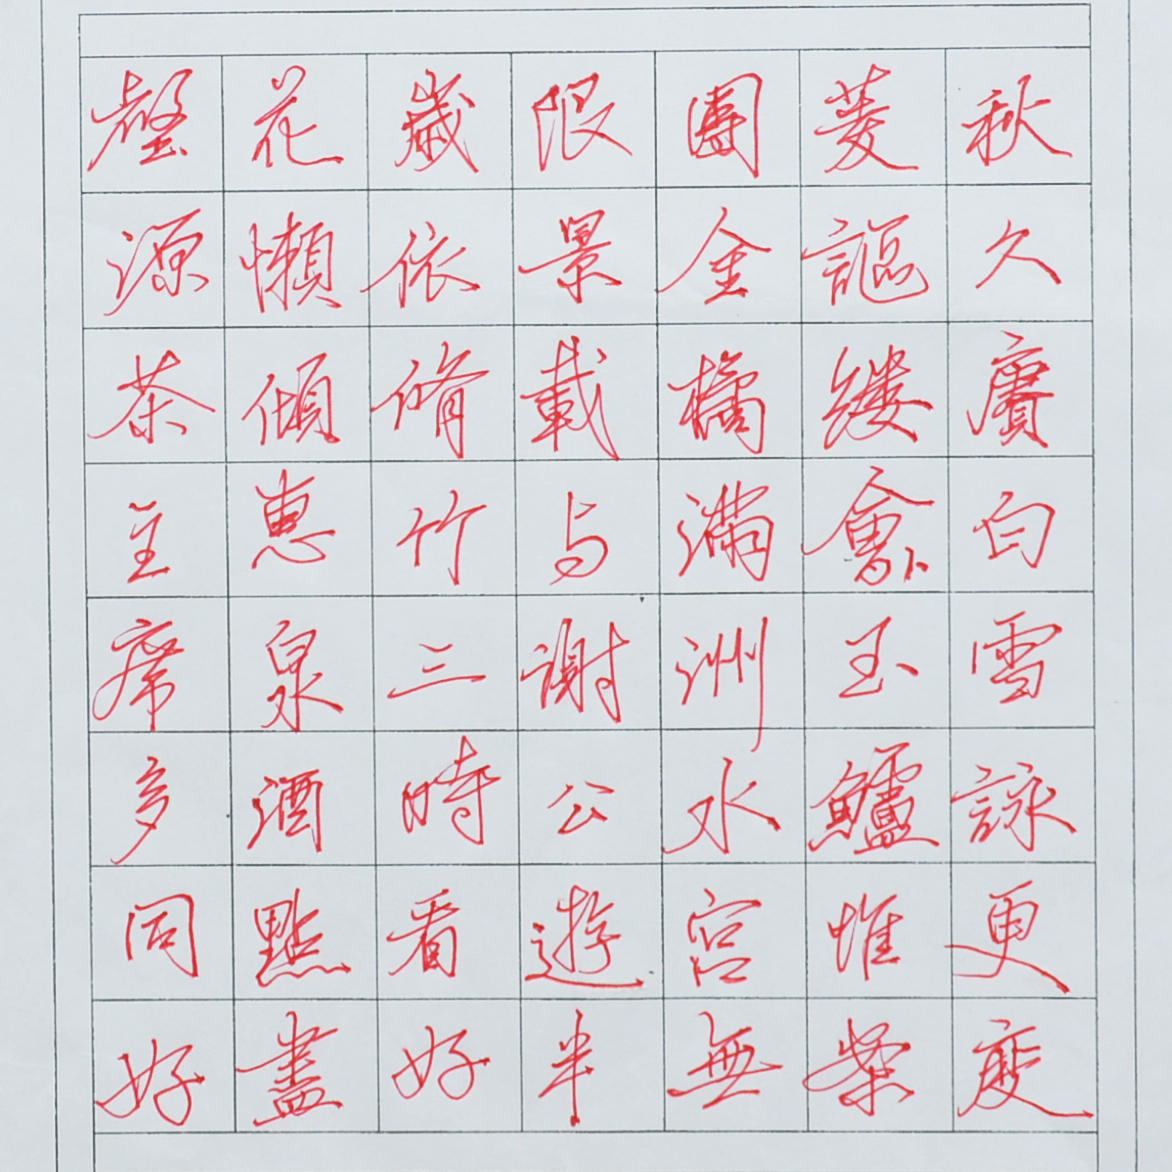 秋久賡白雪詠更度
菱謳縷會玉鱸堆案
團金橘滿洲水宮無
限景載与謝公遊半
歲依脩竹三時看好
花懶傾惠泉酒點盡
壑源茶主席多同好